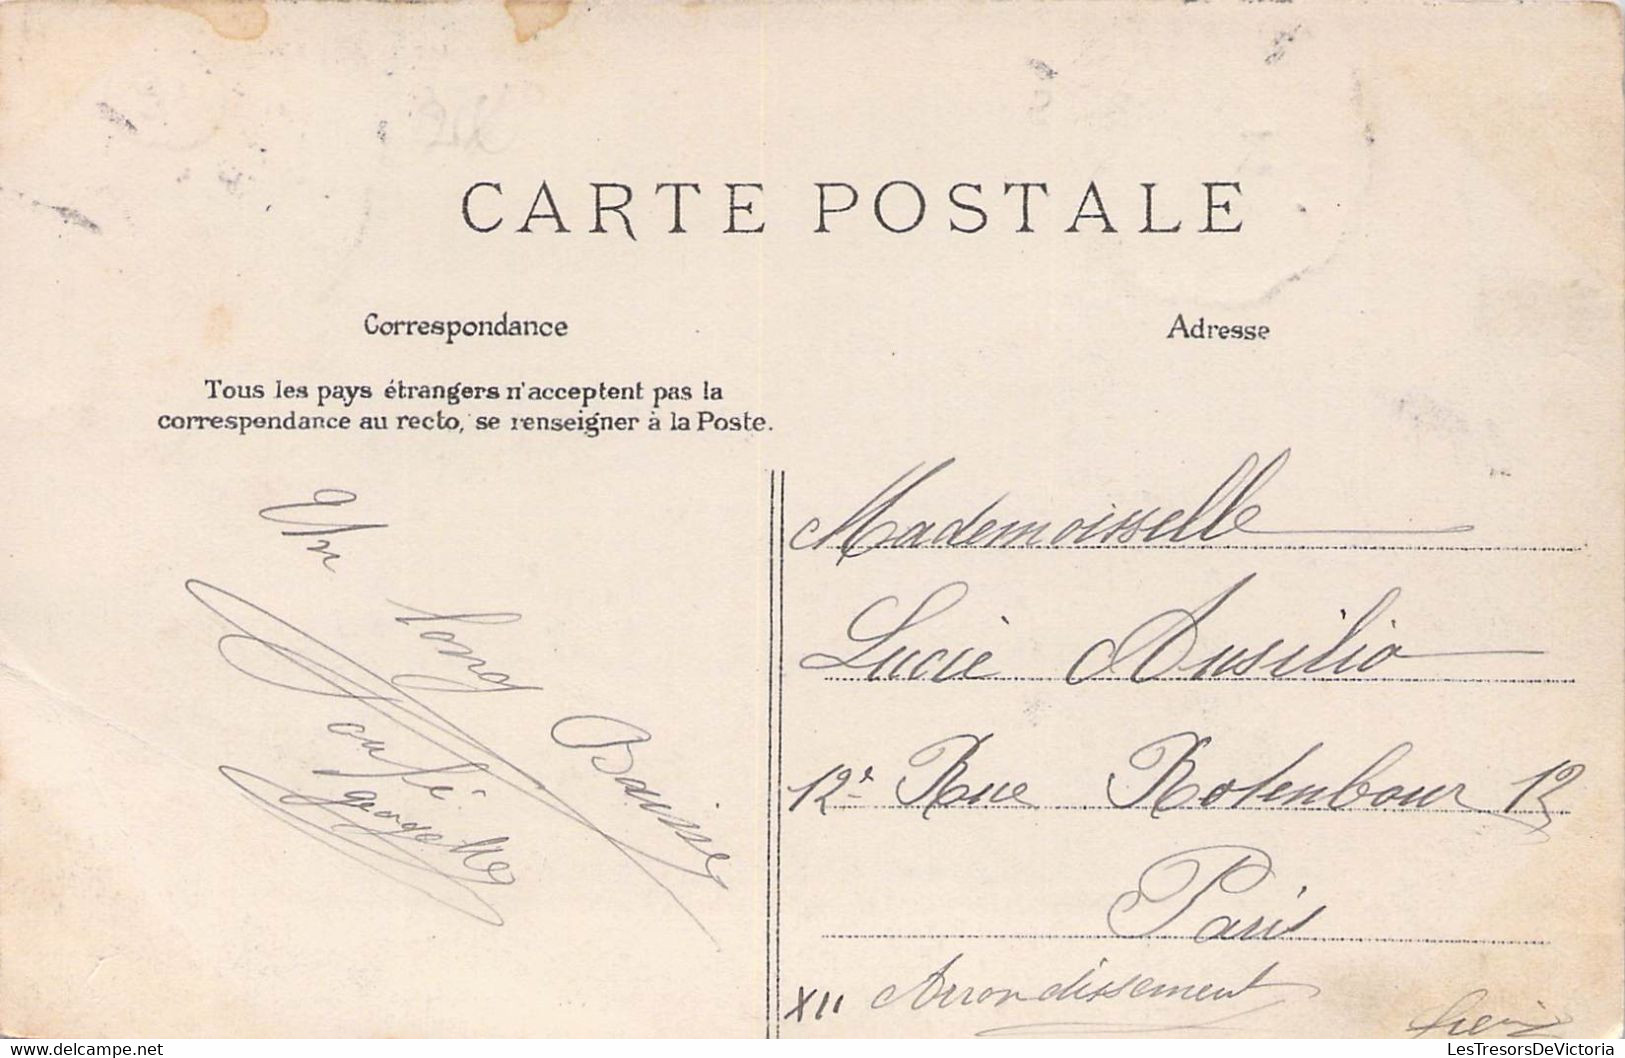 CARTE POSTALE
Correspondance
Adresse
Tous les pays étrangers n'acceptent pas la
correspondance au recto, se renseigner à la Poste.
Un
long
Baisser
georgette
Mademoisselle
Lucie Ausilio
12 Rue Rotenbour 12
Paris
XII Arrondissement
LesTresorsDeVictoria